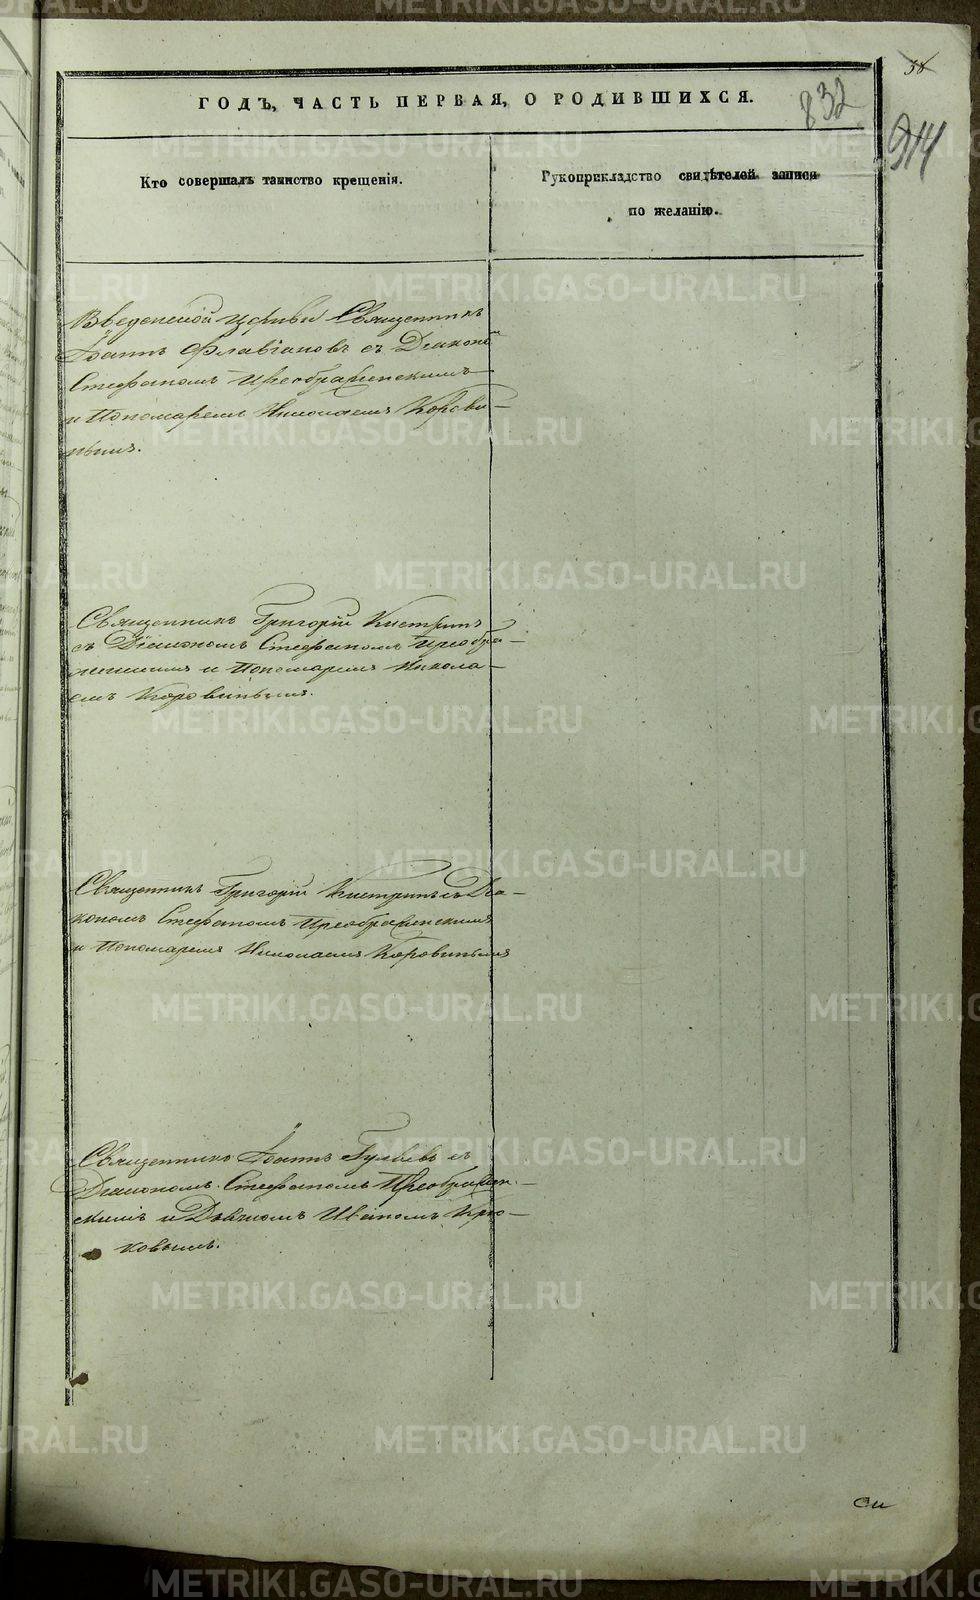 38
ГОДЪ, ЧАСТЬ ПЕРВАЯ, О РОДИВШИХСЯ.
832
914
Кто совершалъ таинство крещенія.
Рукоприкладство свидѣтелей записи
по желанію.
Введенской церкви Священникъ
Іоаннъ Флавіановъ съ Діакономъ
Стефаномъ Преображенскимъ
и Пономаремъ Николаемъ Корови-
нымъ.
Священникъ Григорій Кистринъ
съ Діакономъ Стефаномъ Преобра-
женскимъ и Пономаремъ Никола-
емъ Коровинымъ.
Священникъ Григорій Кистринъ съ Діа-
кономъ Стефаномъ Преображенскимъ
и Пономаремъ Николаемъ Коровинымъ
Священникъ Іоаннъ Гуляевъ съ
Діакономъ Стефаномъ Преображен-
скимъ и Дьячкомъ Иваномъ Крю-
ковымъ.
METRIKI.GASO-URAL.RU